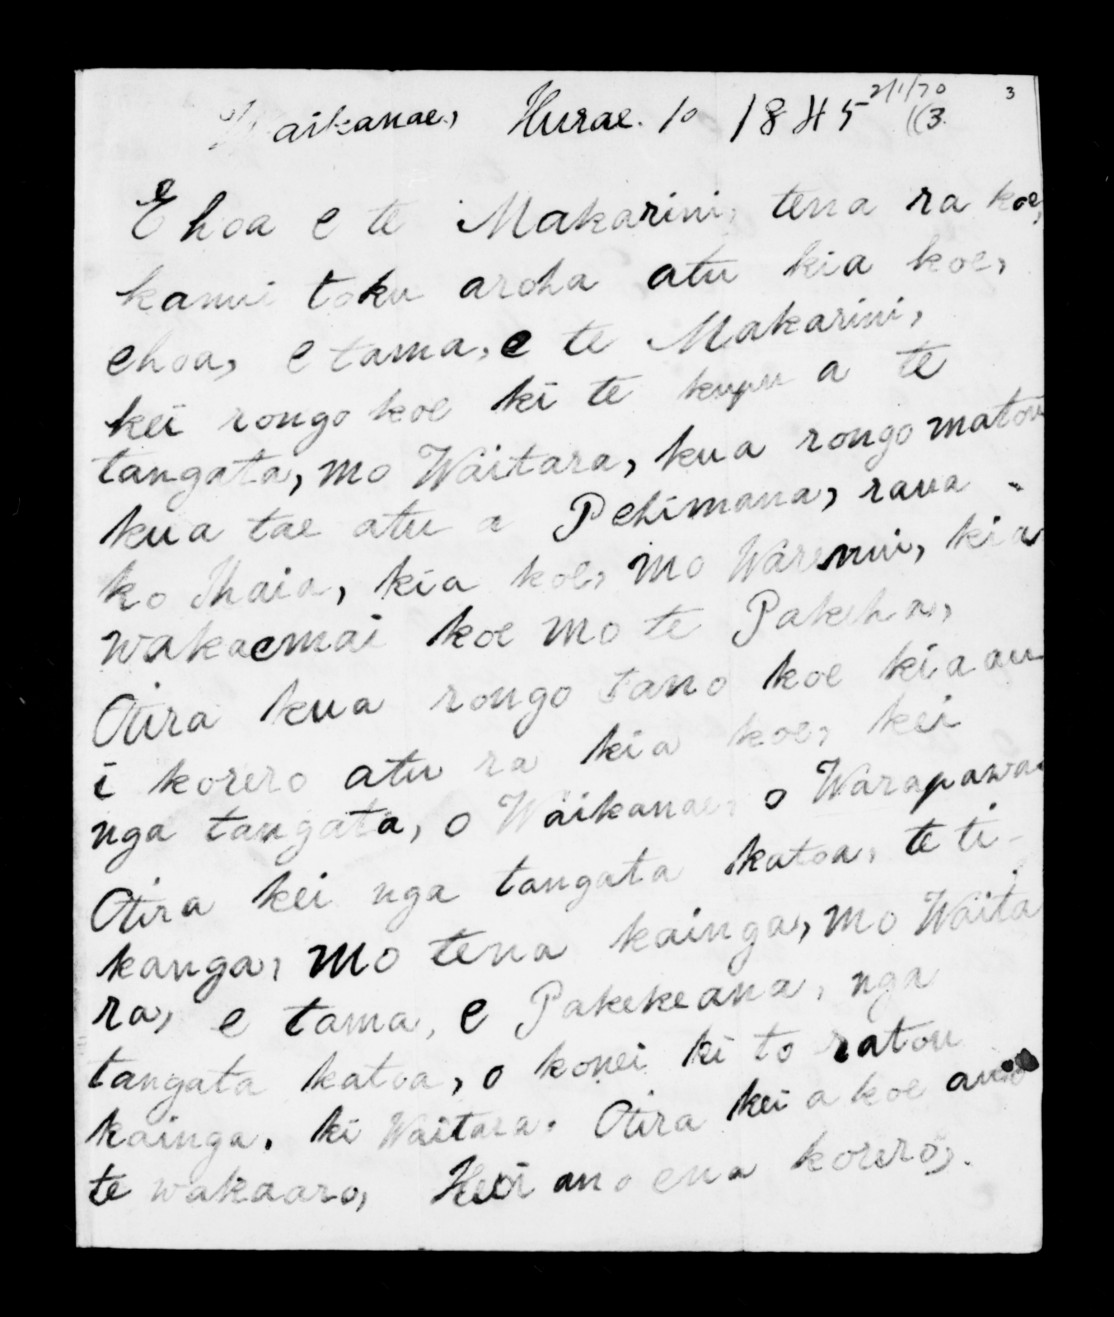 Waikanae, Hurae. 10 1845
2/1/70
3
E hoa e te Makarini, tena ra koe,
kanui toku aroha atu kia koe,
ehoa, e tama, e te Makarini,
kei rongo koe ki te kupu a te
tangata, mo Waitara, kua rongo matou
kua tae atu a Pehimana, raua
ko Ihaia, kia koe, mo Waremui, kia
wakaemai koe mo te Pakeha,
Otira kua rongo tano koe kia au
i korero atu ra kia koe, kei
nga tangata, o Waikanae, o Warapawa
Otira kei nga tangata katoa, te ti-
kanga, mo tena kainga, mo Waita
ra, e tama, e Pakekeana, nga
tangata katoa, o konei ki to ratou
kainga, ki Waitara. Otira kei a koe ano
te wakaaro, Heoi ano ena korero,.